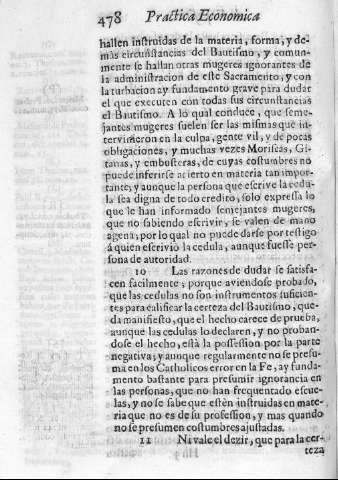 478 Practica Economica
hallen instruidas de la materia, forma, y de-
màs circunstancias del Bautismo, y comun-
mente se hallan otras mugeres ignorantes de
la administracion de este Sacramento, y con
la turbacion ay fundamento grave para dudar
el que executen con todas sus circunstancias
el Bautismo. A lo qual conduce, que seme-
jantes mugeres suelen ser las mismas que in-
tervinieron en la culpa, gente vil, y de pocas
obligaciones, y muchas vezes Moriscas, Gi-
tanas, y embusteras, de cuyas costumbres no
puede inferirse acierto en materia tan impor-
tante; y aunque la persona que escrive la cedu-
la sea digna de todo credito, solo expressa lo
que le han informado semejantes mugeres,
que no sabiendo escrivir, se valen de mano
agena, por lo qual no puede darse por testigo
à quien escriviò la cedula, aunque fuesse per-
sona de autoridad.
10 Las razones de dudar se satisfa-
cen facilmente, porque aviendose probado,
que las cedulas no son instrumentos suficien-
tes para calificar la certeza del Bautismo, que-
da manifiesto, que el hecho carece de prueba,
aunque las cedulas lo declaren, y no proban-
dose el hecho, està la possession por la parte
negativa; y aunque regularmente no se presu-
ma en los Catholicos error en la Fe, ay funda-
mento bastante para presumir ignorancia en
las personas, que no han frequentado escue-
las, y no se sabe que estèn instruidas en mate-
ria que no es de su profession, y mas quando
no se presumen costumbres ajustadas.
11 Ni vale el dezir, que para la cer-
teza